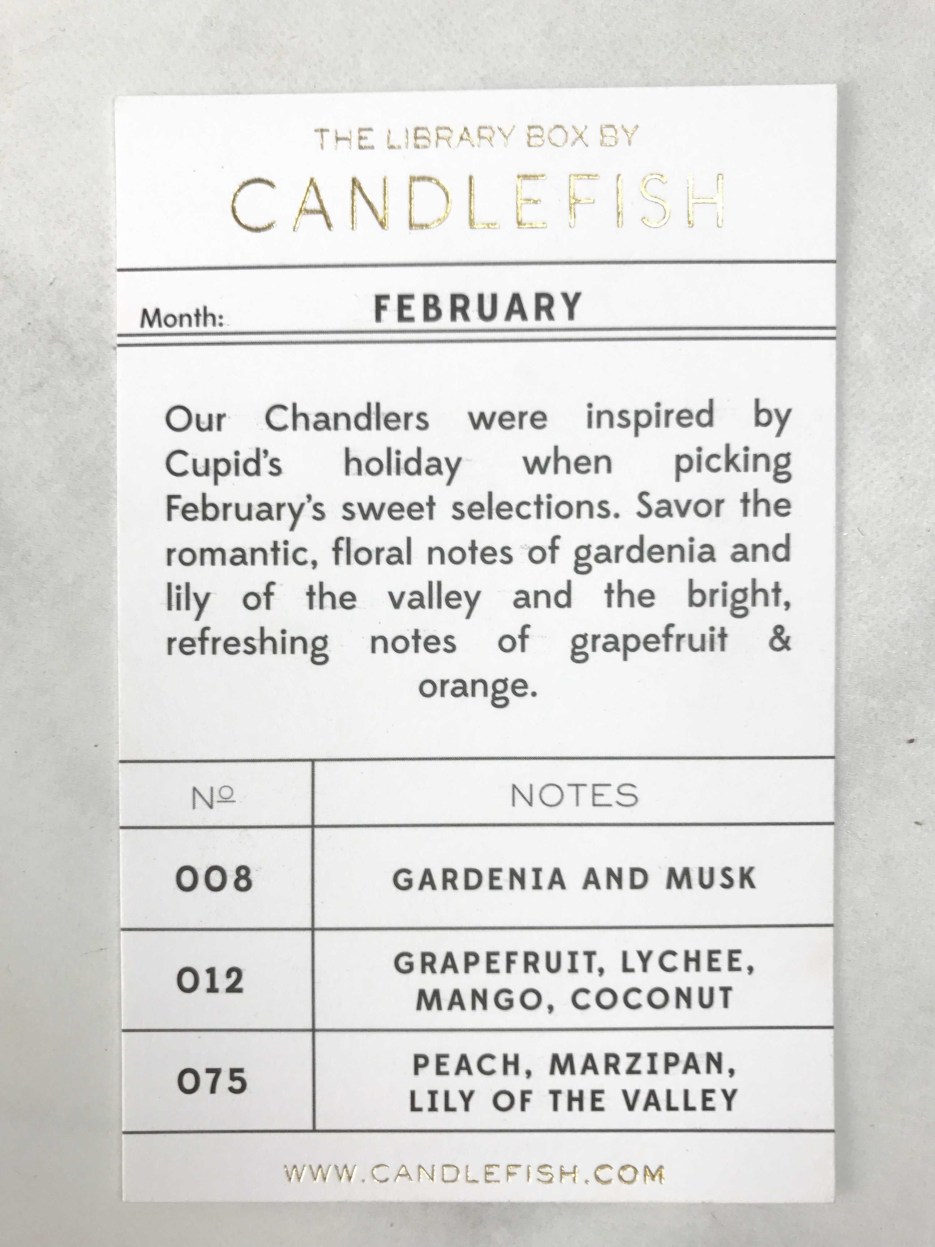 THE LIBRARY BOX BY
CANDLEFISH
Month: FEBRUARY
Our Chandlers were inspired by
Cupid's holiday when picking
February's sweet selections. Savor the
romantic, floral notes of gardenia and
lily of the valley and the bright,
refreshing notes of grapefruit &
orange.
Nº NOTES
008 GARDENIA AND MUSK
012 GRAPEFRUIT, LYCHEE,
MANGO, COCONUT
075 PEACH, MARZIPAN,
LILY OF THE VALLEY
WWW.CANDLEFISH.COM